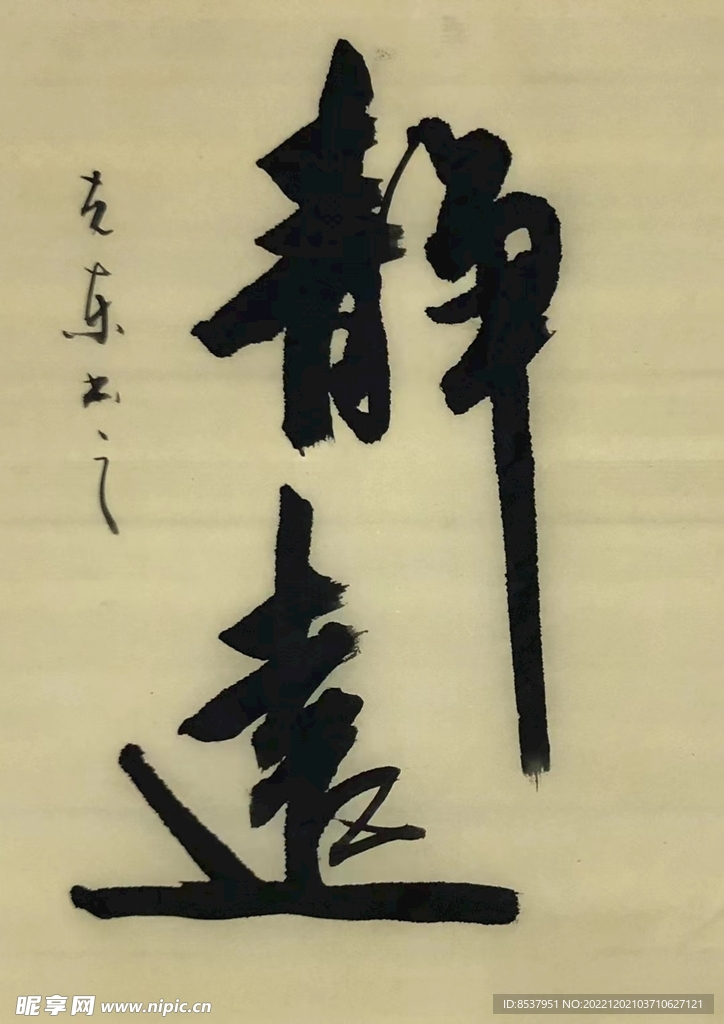 靜遠
克东书之
昵享网 www.nipic.cn
ID:8537951 NO:20221202103710627121